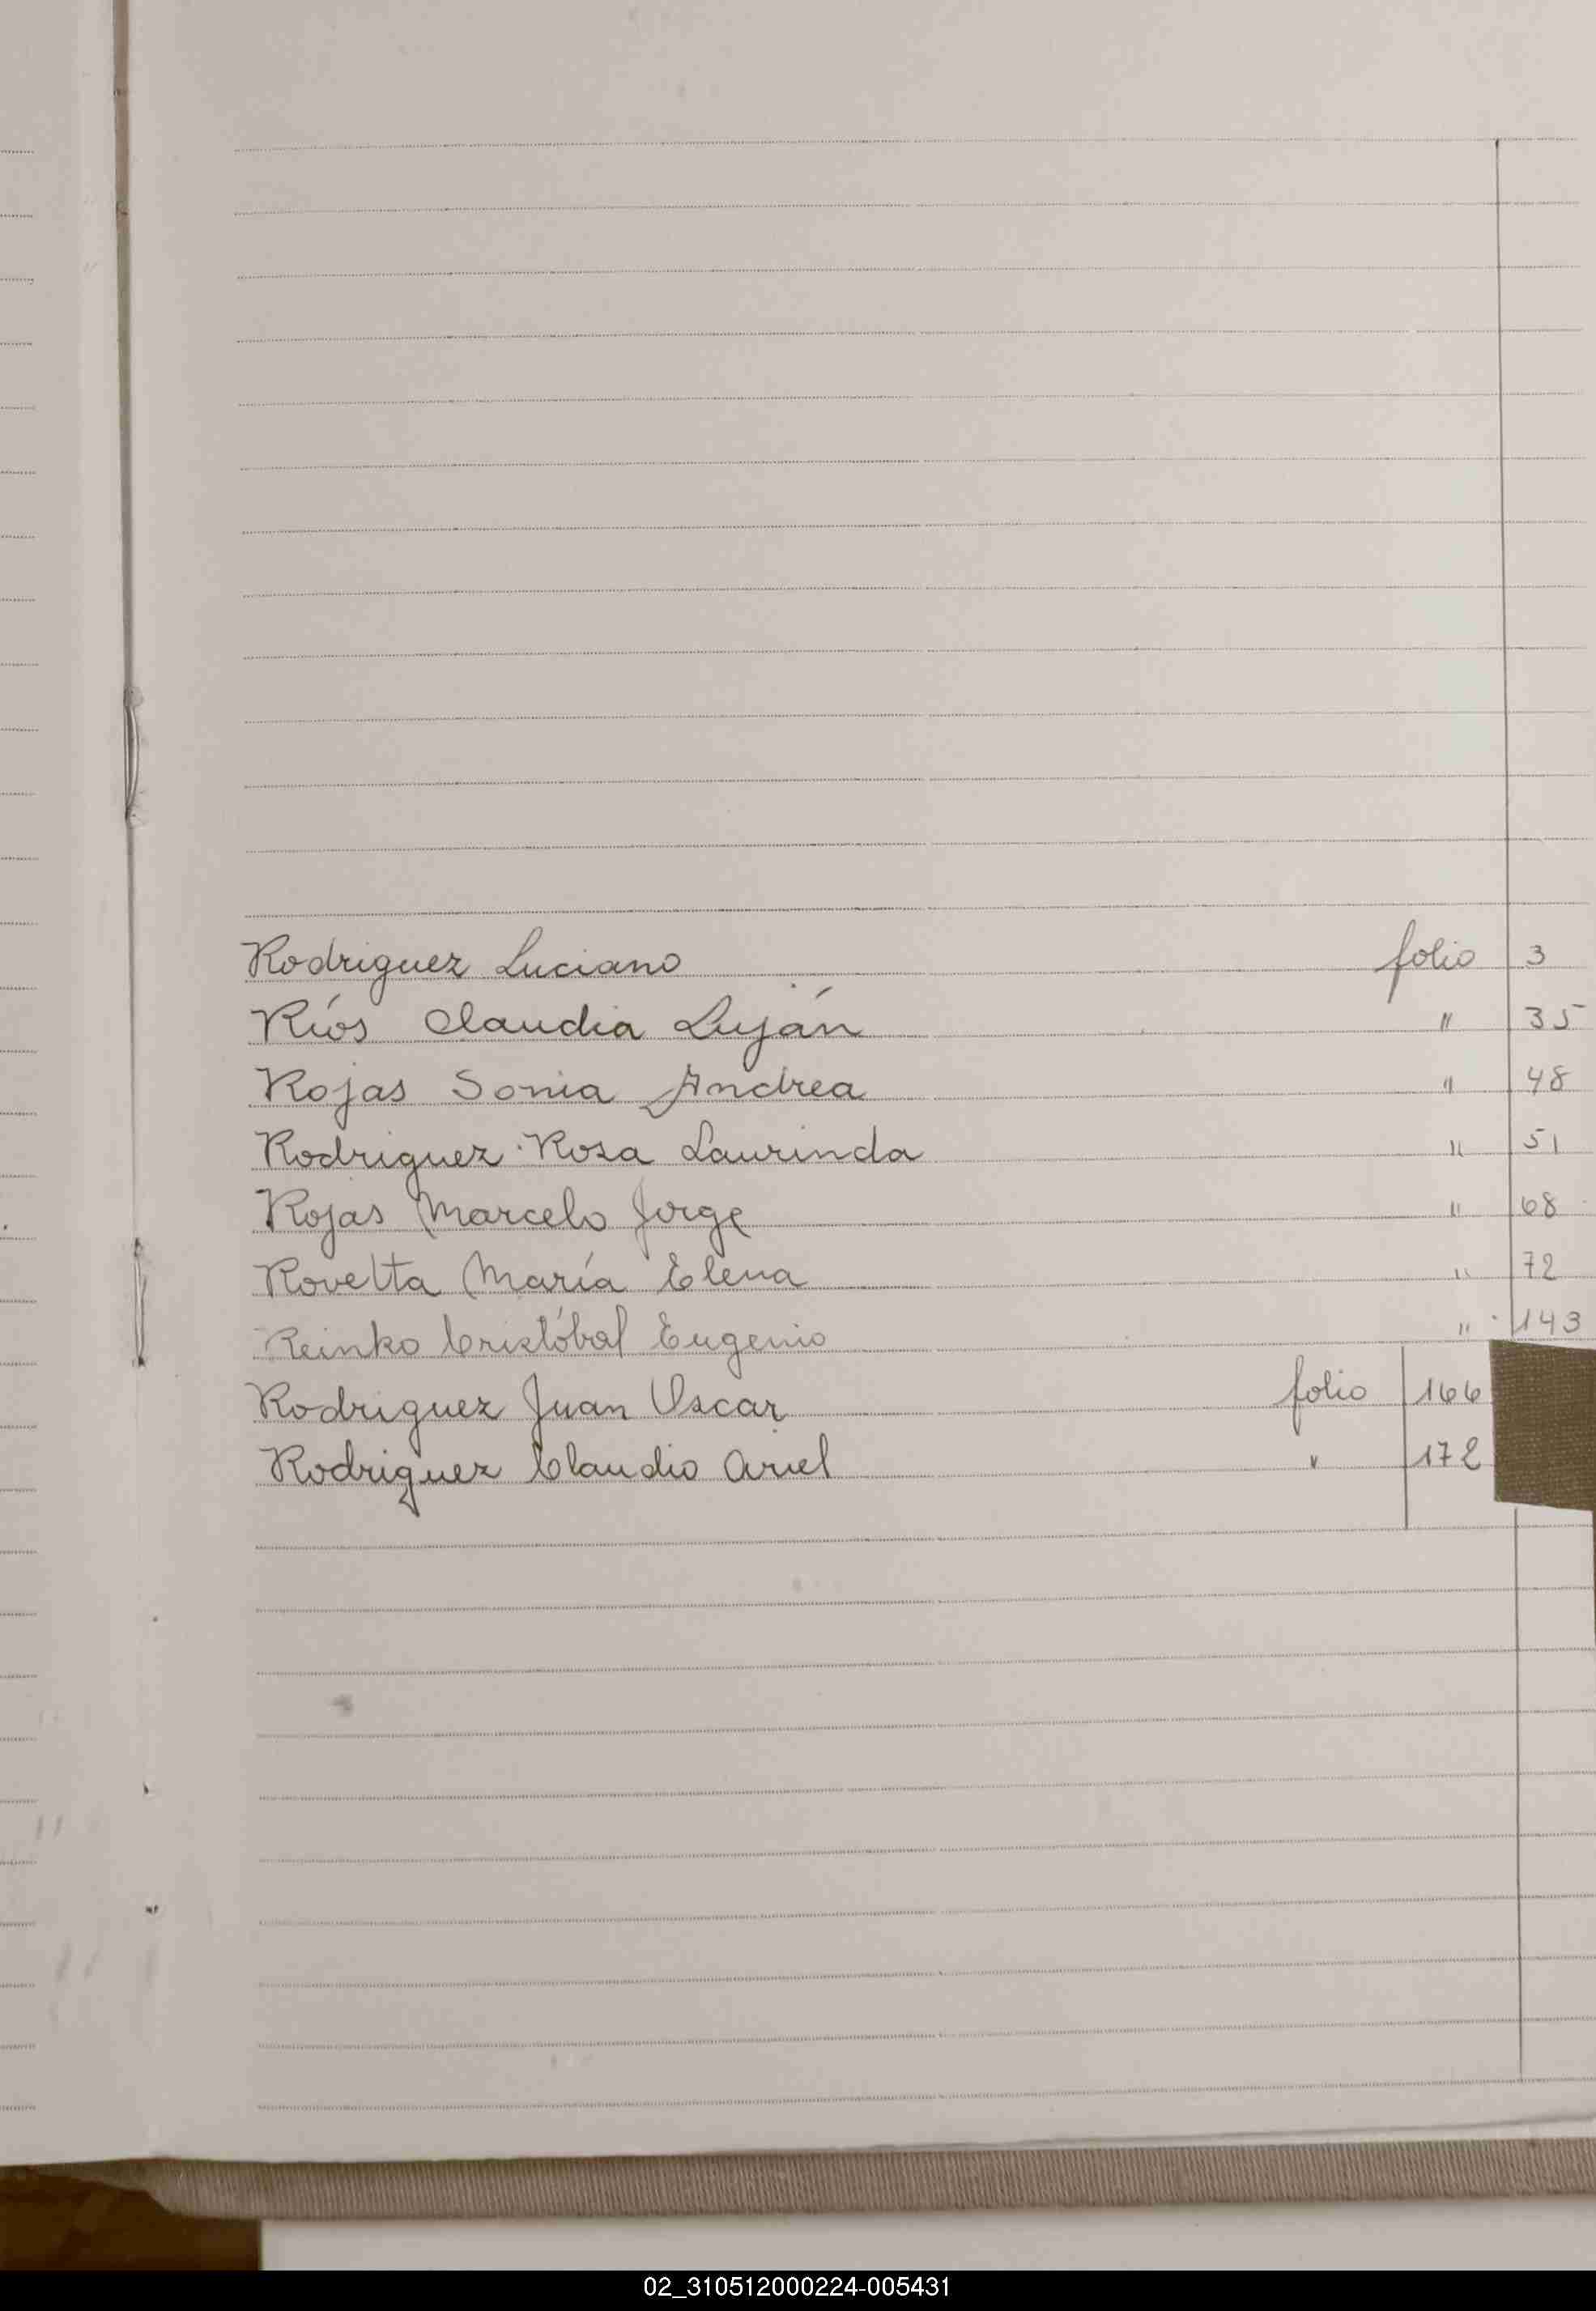 Rodriguez Luciano folio 3
Ríos Claudia Luján " 35
Rojas Sonia Andrea " 48
Rodriguez Rosa Laurinda " 51
Rojas Marcelo Jorge " 68
Rovetta María Elena " 72
Reinko Cristóbal Eugenio " 143
Rodriguez Juan Oscar folio 166
Rodriguez Claudio Ariel " 172
02_310512000224-005431